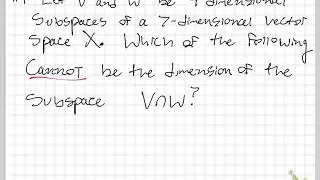 Let V and W be 4-dimensional
Subspaces of a 7-dimensional vector
Space X. Which of the following
Cannot be the dimension of the
Subspace V∩W?